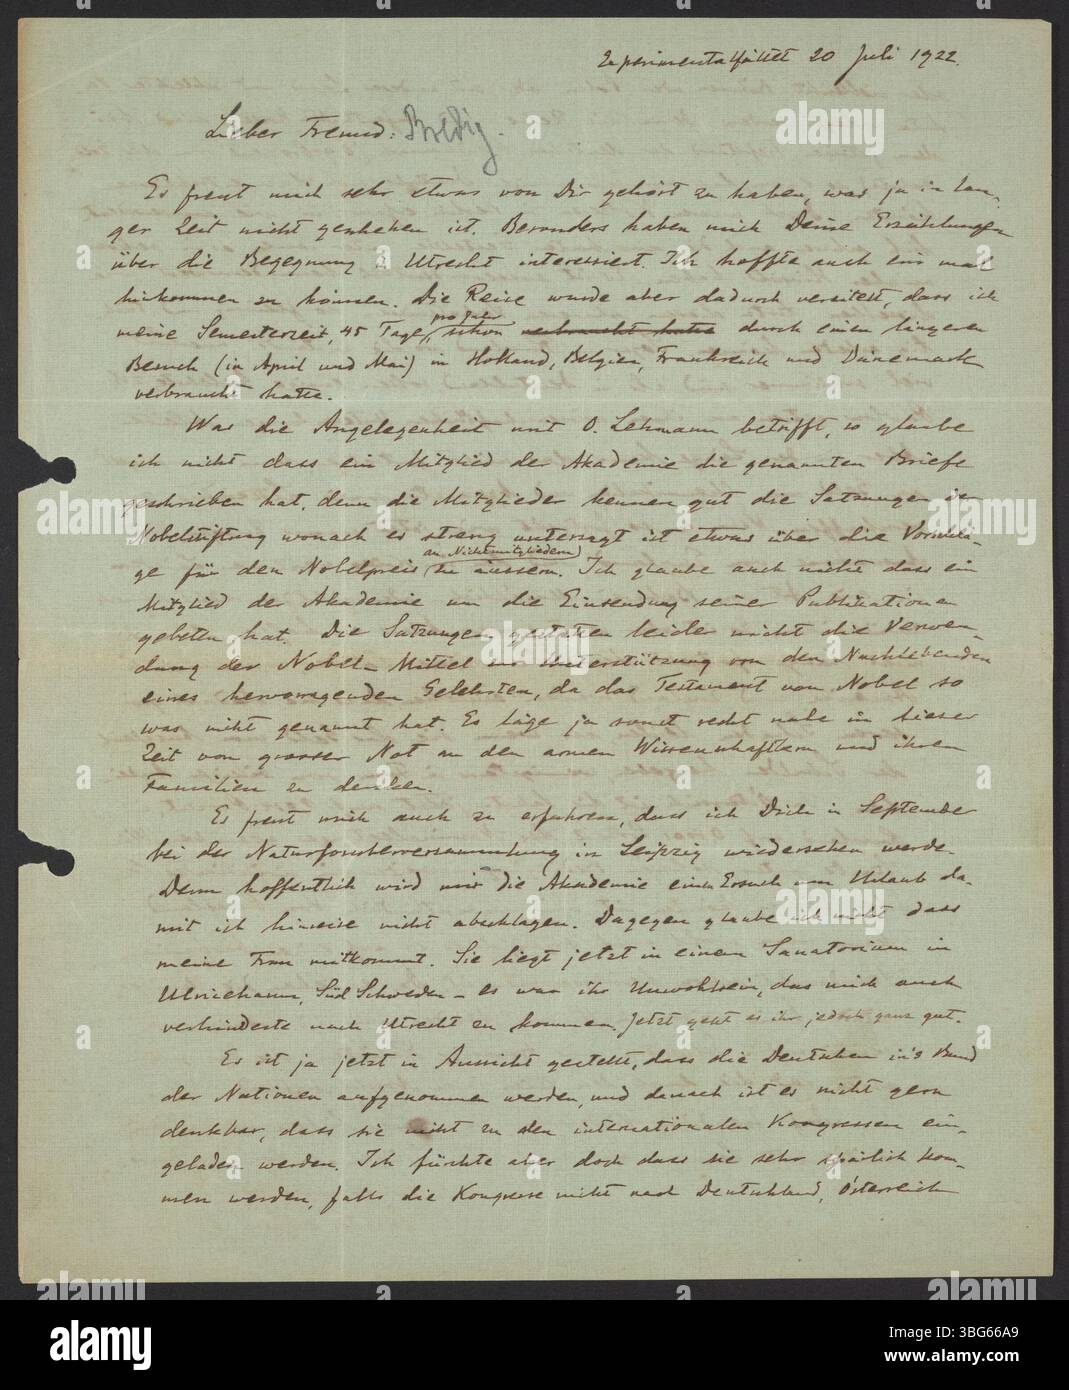 Experimentalfältet 20 Juli 1922.
Lieber Freund: Bredig.
Es freut mich sehr etwas von Dir gehört zu haben, was ja in lan-
ger Zeit nicht geschehen ist. Besonders haben mich Deine Erzählungen
über die Begegnung in Utrecht interessiert. Ich hoffte auch ein mal
hinkommen zu können. Die Reise wurde aber dadurch vereitelt, dass ich
meine Semesterzeit, 45 Tage, pro Jahr schon verbraucht hatte durch einen längeren
Besuch (in April und Mai) in Holland, Belgien, Frankreich und Dänemark
verbraucht hatte.
Was die Angelegenheit mit O. Lehmann betrifft, so glaube
ich nicht dass ein Mitglied der Akademie die genannten Briefe
geschrieben hat, denn die Mitglieder kennen gut die Satzungen der
Nobelstiftung wonach es streng untersagt ist etwas über die Vorschlä-
ge für den Nobelpreis an Nichtmitgliedern zu äussern. Ich glaube auch nicht dass ein
Mitglied der Akademie um die Einsendung seiner Publikationen
gebeten hat. Die Satzungen gestatten leider nicht die Verwen-
dung der Nobel-Mittel zur Unterstützung von den Nachlebenden
eines hervorragenden Gelehrten, da das Testament von Nobel so
was nicht genannt hat. Es läge ja sonst recht nahe in dieser
Zeit von grosser Not an den armen Wissenschaftlern und ihren
Familien zu denken.
Es freut mich auch zu erfahren, dass ich Dich in September
bei der Naturforscherversammlung in Leipzig wiedersehen werde.
Denn hoffentlich wird mir die Akademie einen Ersuch um Urlaub da-
mit ich hinreise nicht abschlagen. Dagegen glaube ich nicht dass
meine Frau mitkommt. Sie liegt jetzt in einem Sanatorium in
Ulricehamn, Süd Schweden – es war ihr Unwohlsein, das mich auch
verhinderte nach Utrecht zu kommen. Jetzt geht es ihr jedoch ganz gut.
Es ist ja jetzt in Aussicht gestellt, dass die Deutschen in's Bund
der Nationen aufgenommen werden, und danach ist es nicht gern
denkbar, dass sie nicht zu den internationalen Kongressen ein-
geladen werden. Ich fürchte aber doch dass sie sehr spärlich kom-
men werden, falls die Kongresse nicht nach Deutschland, Österreich
alamy
alamy
Image ID: 3BG66A9
www.alamy.com